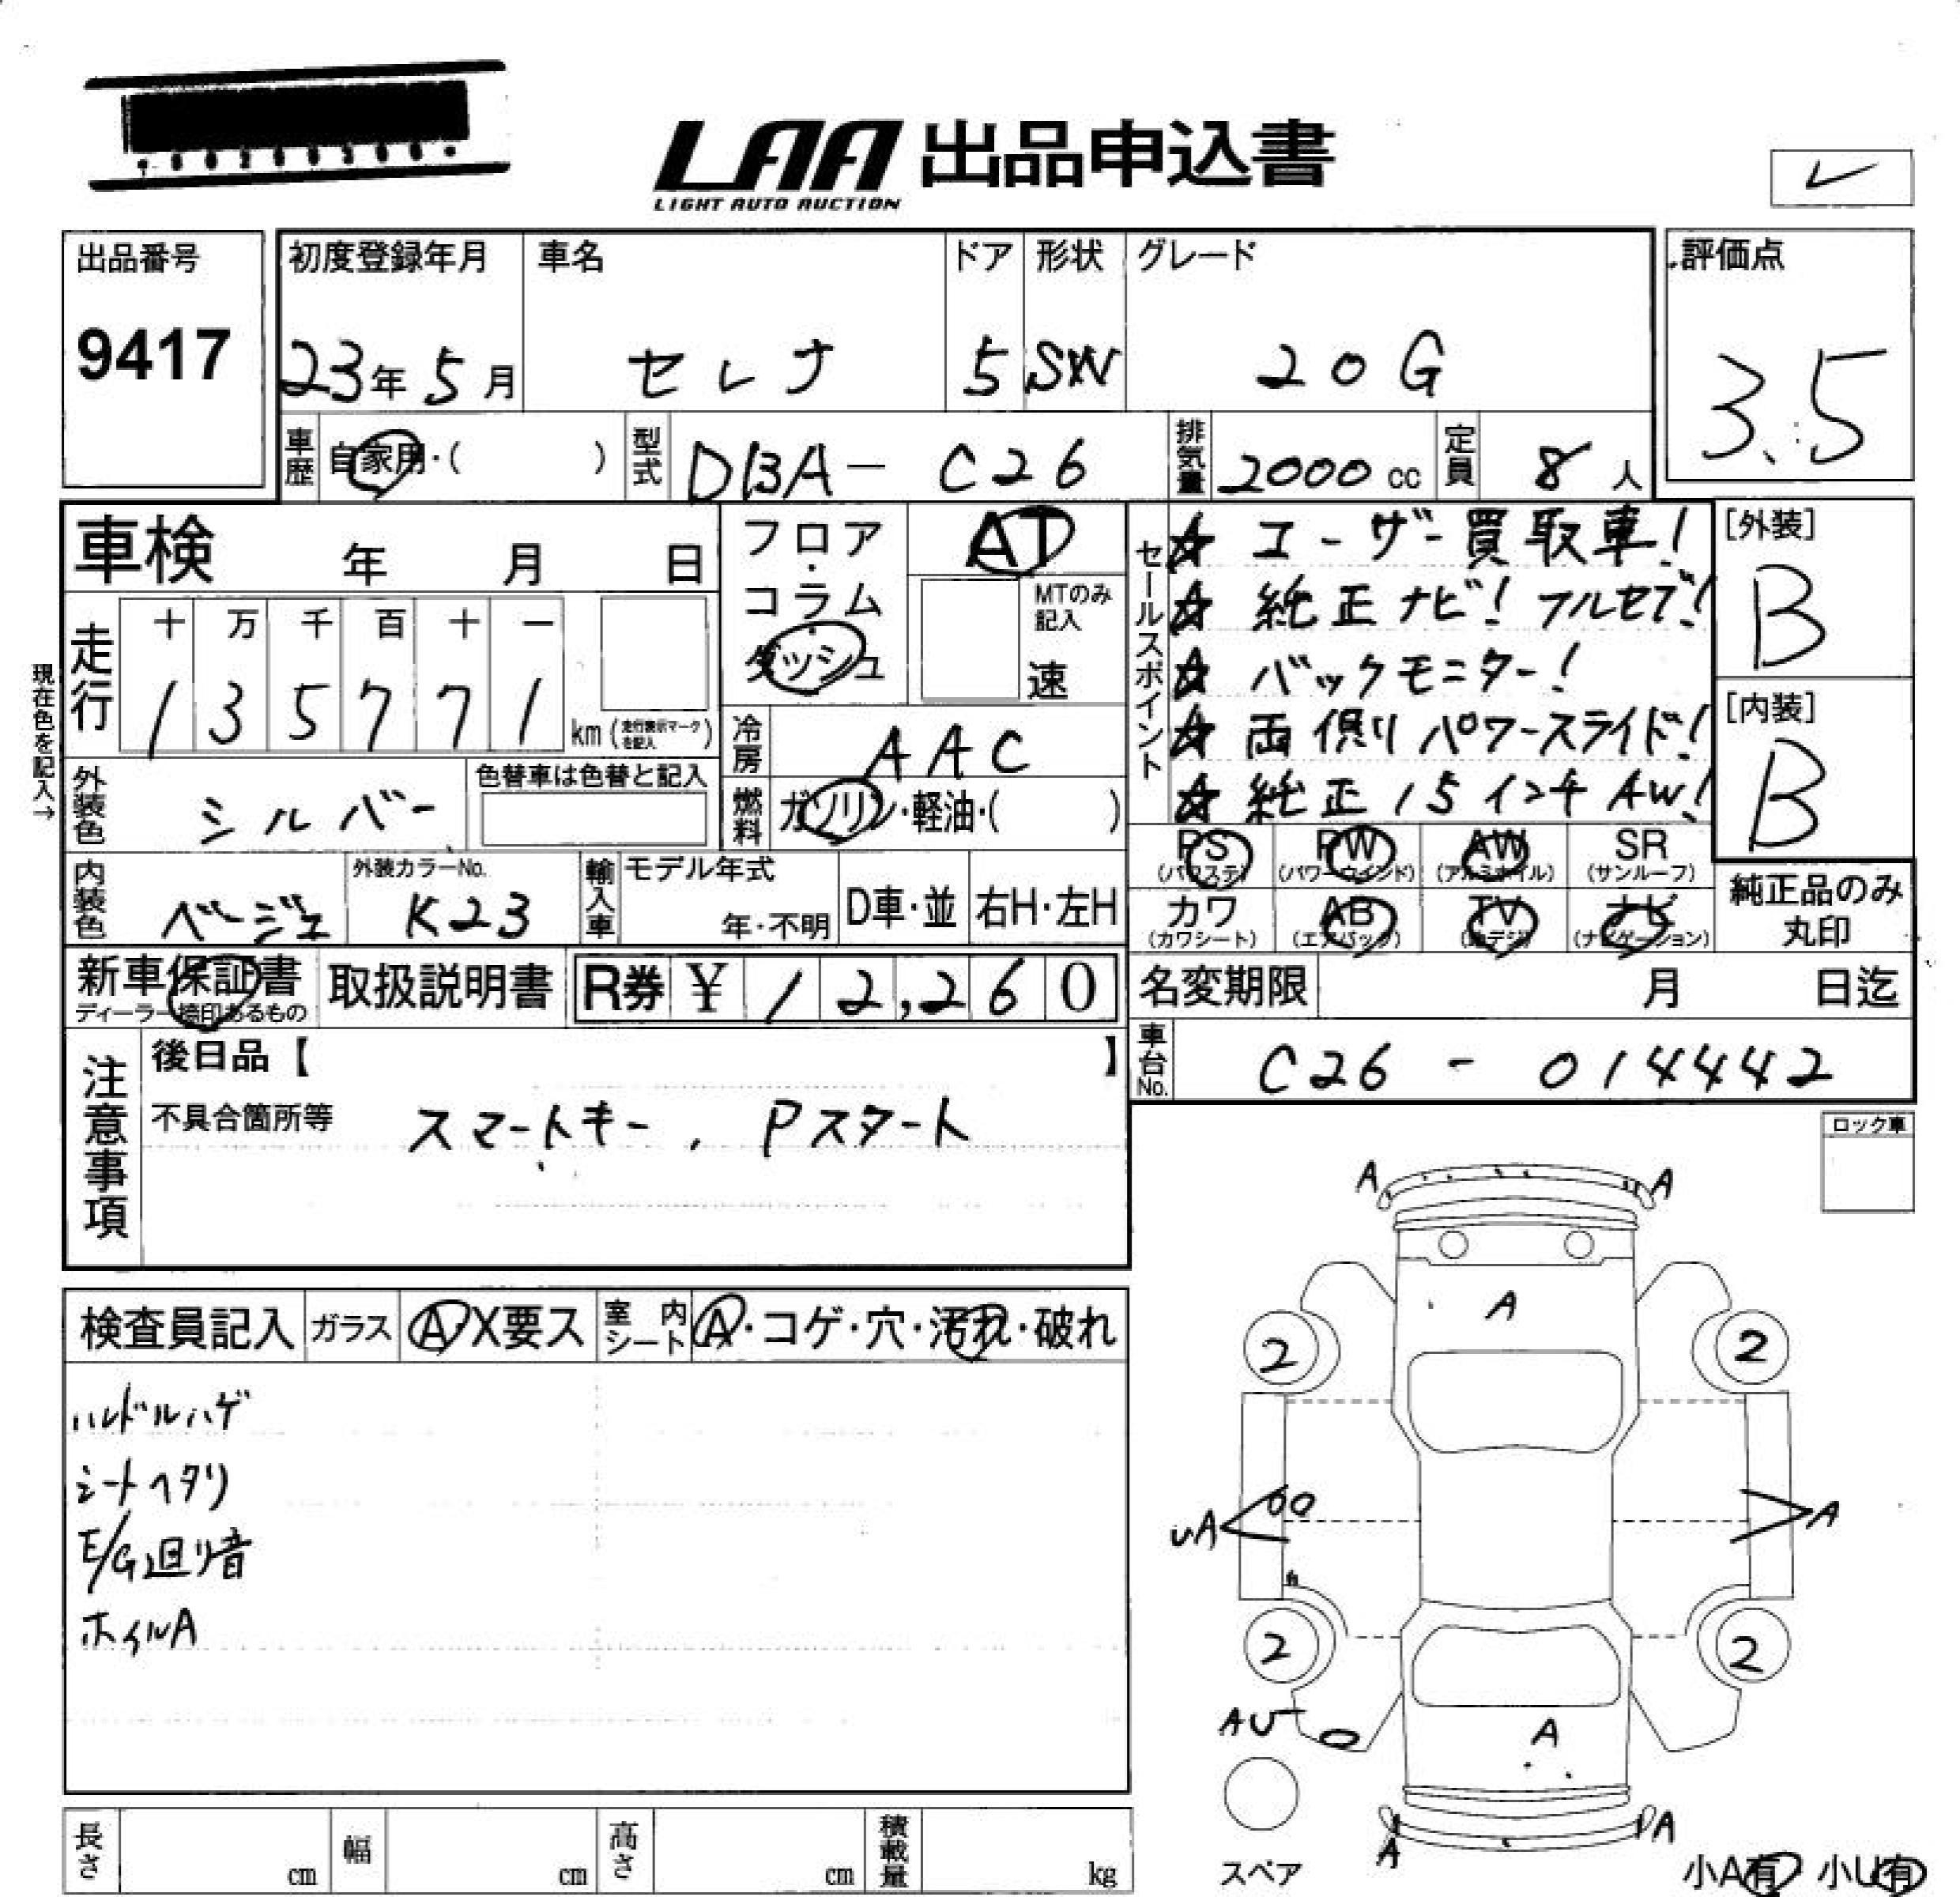 LAA 出品申込書
LIGHT AUTO AUCTION
レ
出品番号
9417
初度登録年月
23年 5月
車名
セレナ
ドア
5
形状
SW
グレード
20G
評価点
3.5
車歴
自家用・( )
型式
DBA- C26
排気量
2000 cc
定員
8 人
車検 年 月 日
フロア・コラム・ダッシュ
AT
MTのみ記入
速
セールスポイント
☆ ユーザー買取車!
☆ 純正ナビ! フルセブ!
☆ バックモニター!
☆ 両側パワースライド!
☆ 純正15インチAW!
[外装]
B
[内装]
B
現在色を記入→
走行
十 万 千 百 十 一
1 3 5 7 7 1
km (走行表示マークを記入)
冷房
AAC
外装色
シルバー
色替車は色替と記入
燃料
ガソリン・軽油・( )
PS (パワステ)
PW (パワーウインド)
AW (アルミホイル)
SR (サンルーフ)
カワ (カワシート)
AB (エアバック)
TV (地デジ)
ナビ (ナビゲーション)
純正品のみ丸印
内装色
ベージュ
外装カラーNo.
K23
輸入車
モデル年式
年・不明
D車・並
右H・左H
新車保証書
ディーラー捺印あるもの
取扱説明書
R券 ¥ 12,260
名変期限 月 日迄
車台No.
C26 - 014442
注意事項
後日品【 】
不具合箇所等
スマートキー, Pスタート
ロック車
検査員記入
ガラス
A・X要ス
室内シート
A・コゲ・穴・汚れ・破れ
ハンドルハゲ
シートヘタリ
E/G廻り音
ホイルA
A A
A
2 2
UA A
2 2
AU
A
A A
スペア
小A有 小U有
長さ cm
幅 cm
高さ cm
積載量 kg